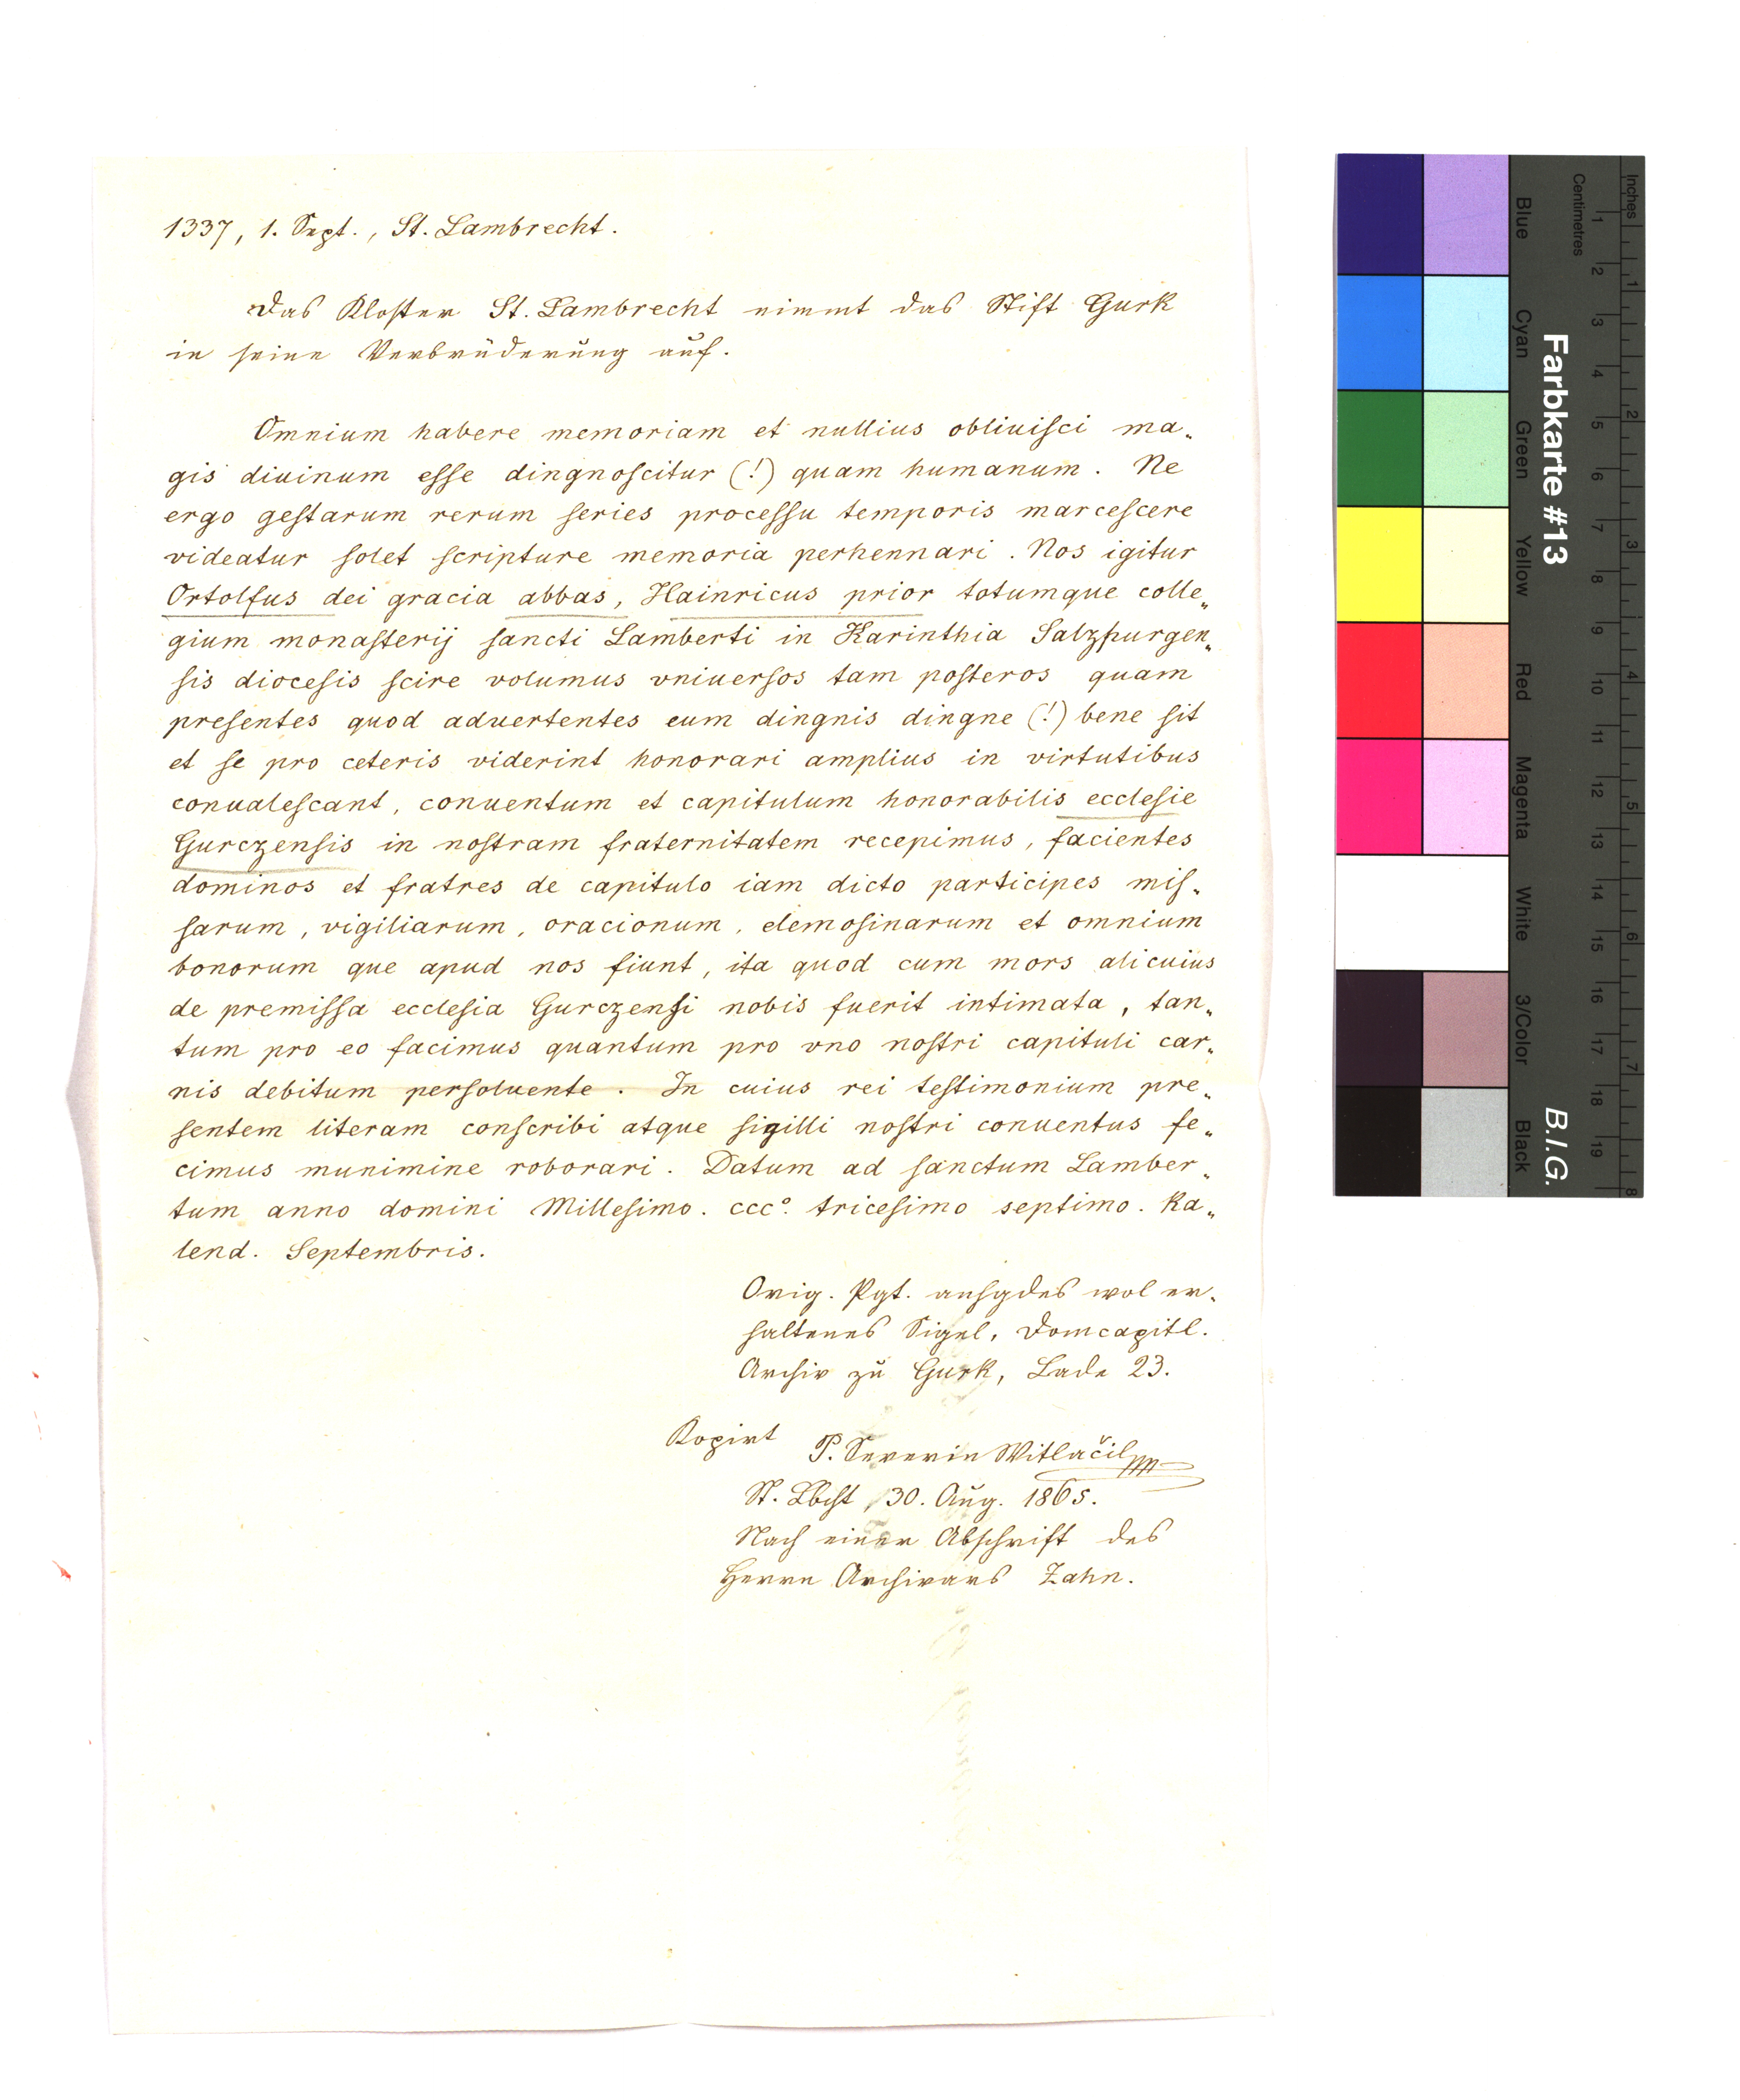 1337, 1. Sept., St. Lambrecht.
Das Kloster St. Lambrecht nimmt das Stift Gurk
in seine Verbrüderung auf.
Omnium habere memoriam et nullius obliuisci ma„
gis diuinum esse dingnoscitur (!) quam humanum. Ne
ergo gestarum rerum series processu temporis marcescere
videatur solet scripture memoria perhennari. Nos igitur
Ortolfus dei gracia abbas, Hainricus prior totumque colle„
gium monasterij sancti Lamberti in Karinthia Salzpurgen„
sis diocesis scire volumus vniuersos tam posteros quam
presentes quod aduertentes cum dingnis dingne (!) bene sit
et se pro ceteris viderint honorari amplius in virtutibus
conualescant, conuentum et capitulum honorabilis ecclesie
Gurczensis in nostram fraternitatem recepimus, facientes
dominos et fratres de capitulo iam dicto participes mis„
sarum, vigiliarum, oracionum, elemosinarum et omnium
bonorum que apud nos fiunt, ita quod cum mors alicuius
de premissa ecclesia Gurczensi nobis fuerit intimata, tan„
tum pro eo facimus quantum pro vno nostri capituli car„
nis debitum persoluente. In cuius rei testimonium pre„
sentem literam conscribi atque sigilli nostri conuentus fe„
cimus munimine roborari. Datum ad sanctum Lamber„
tum anno domini Millesimo. ccc⁰. tricesimo septimo. Ka„
lend. Septembris.
Orig. Pgt. anhgdes wol er„
haltenes Sigel, Domcapitl.
Archiv zu Gurk, Lade 23.
Kopirt P. Severin Witlačil
St. Lbcht, 30. Aug. 1865.
Nach einer Abschrift des
Herrn Archivars Zahn.
Farbkarte #13
B.I.G.
Centimetres
Inches
Blue
Cyan
Green
Yellow
Red
Magenta
White
3/Color
Black
1 2 3 4 5 6 7 8 9 10 11 12 13 14 15 16 17 18 19
1 2 3 4 5 6 7 8